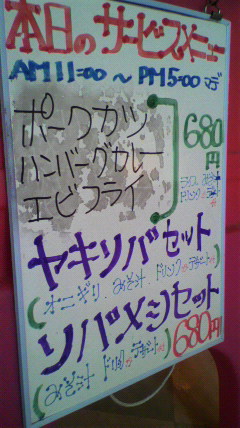 本日のサービスメニュー
AM11:00 〜 PM5:00 マデ
ポークカツ
ハンバーグカレー
エビフライ
680円
ライス みそ汁
ドリンク
ヤキソバセット
(オニギリ、みそ汁 ドリンク か デザート)
ソバメシセット
(みそ汁 ドリンク か デザート) 680円